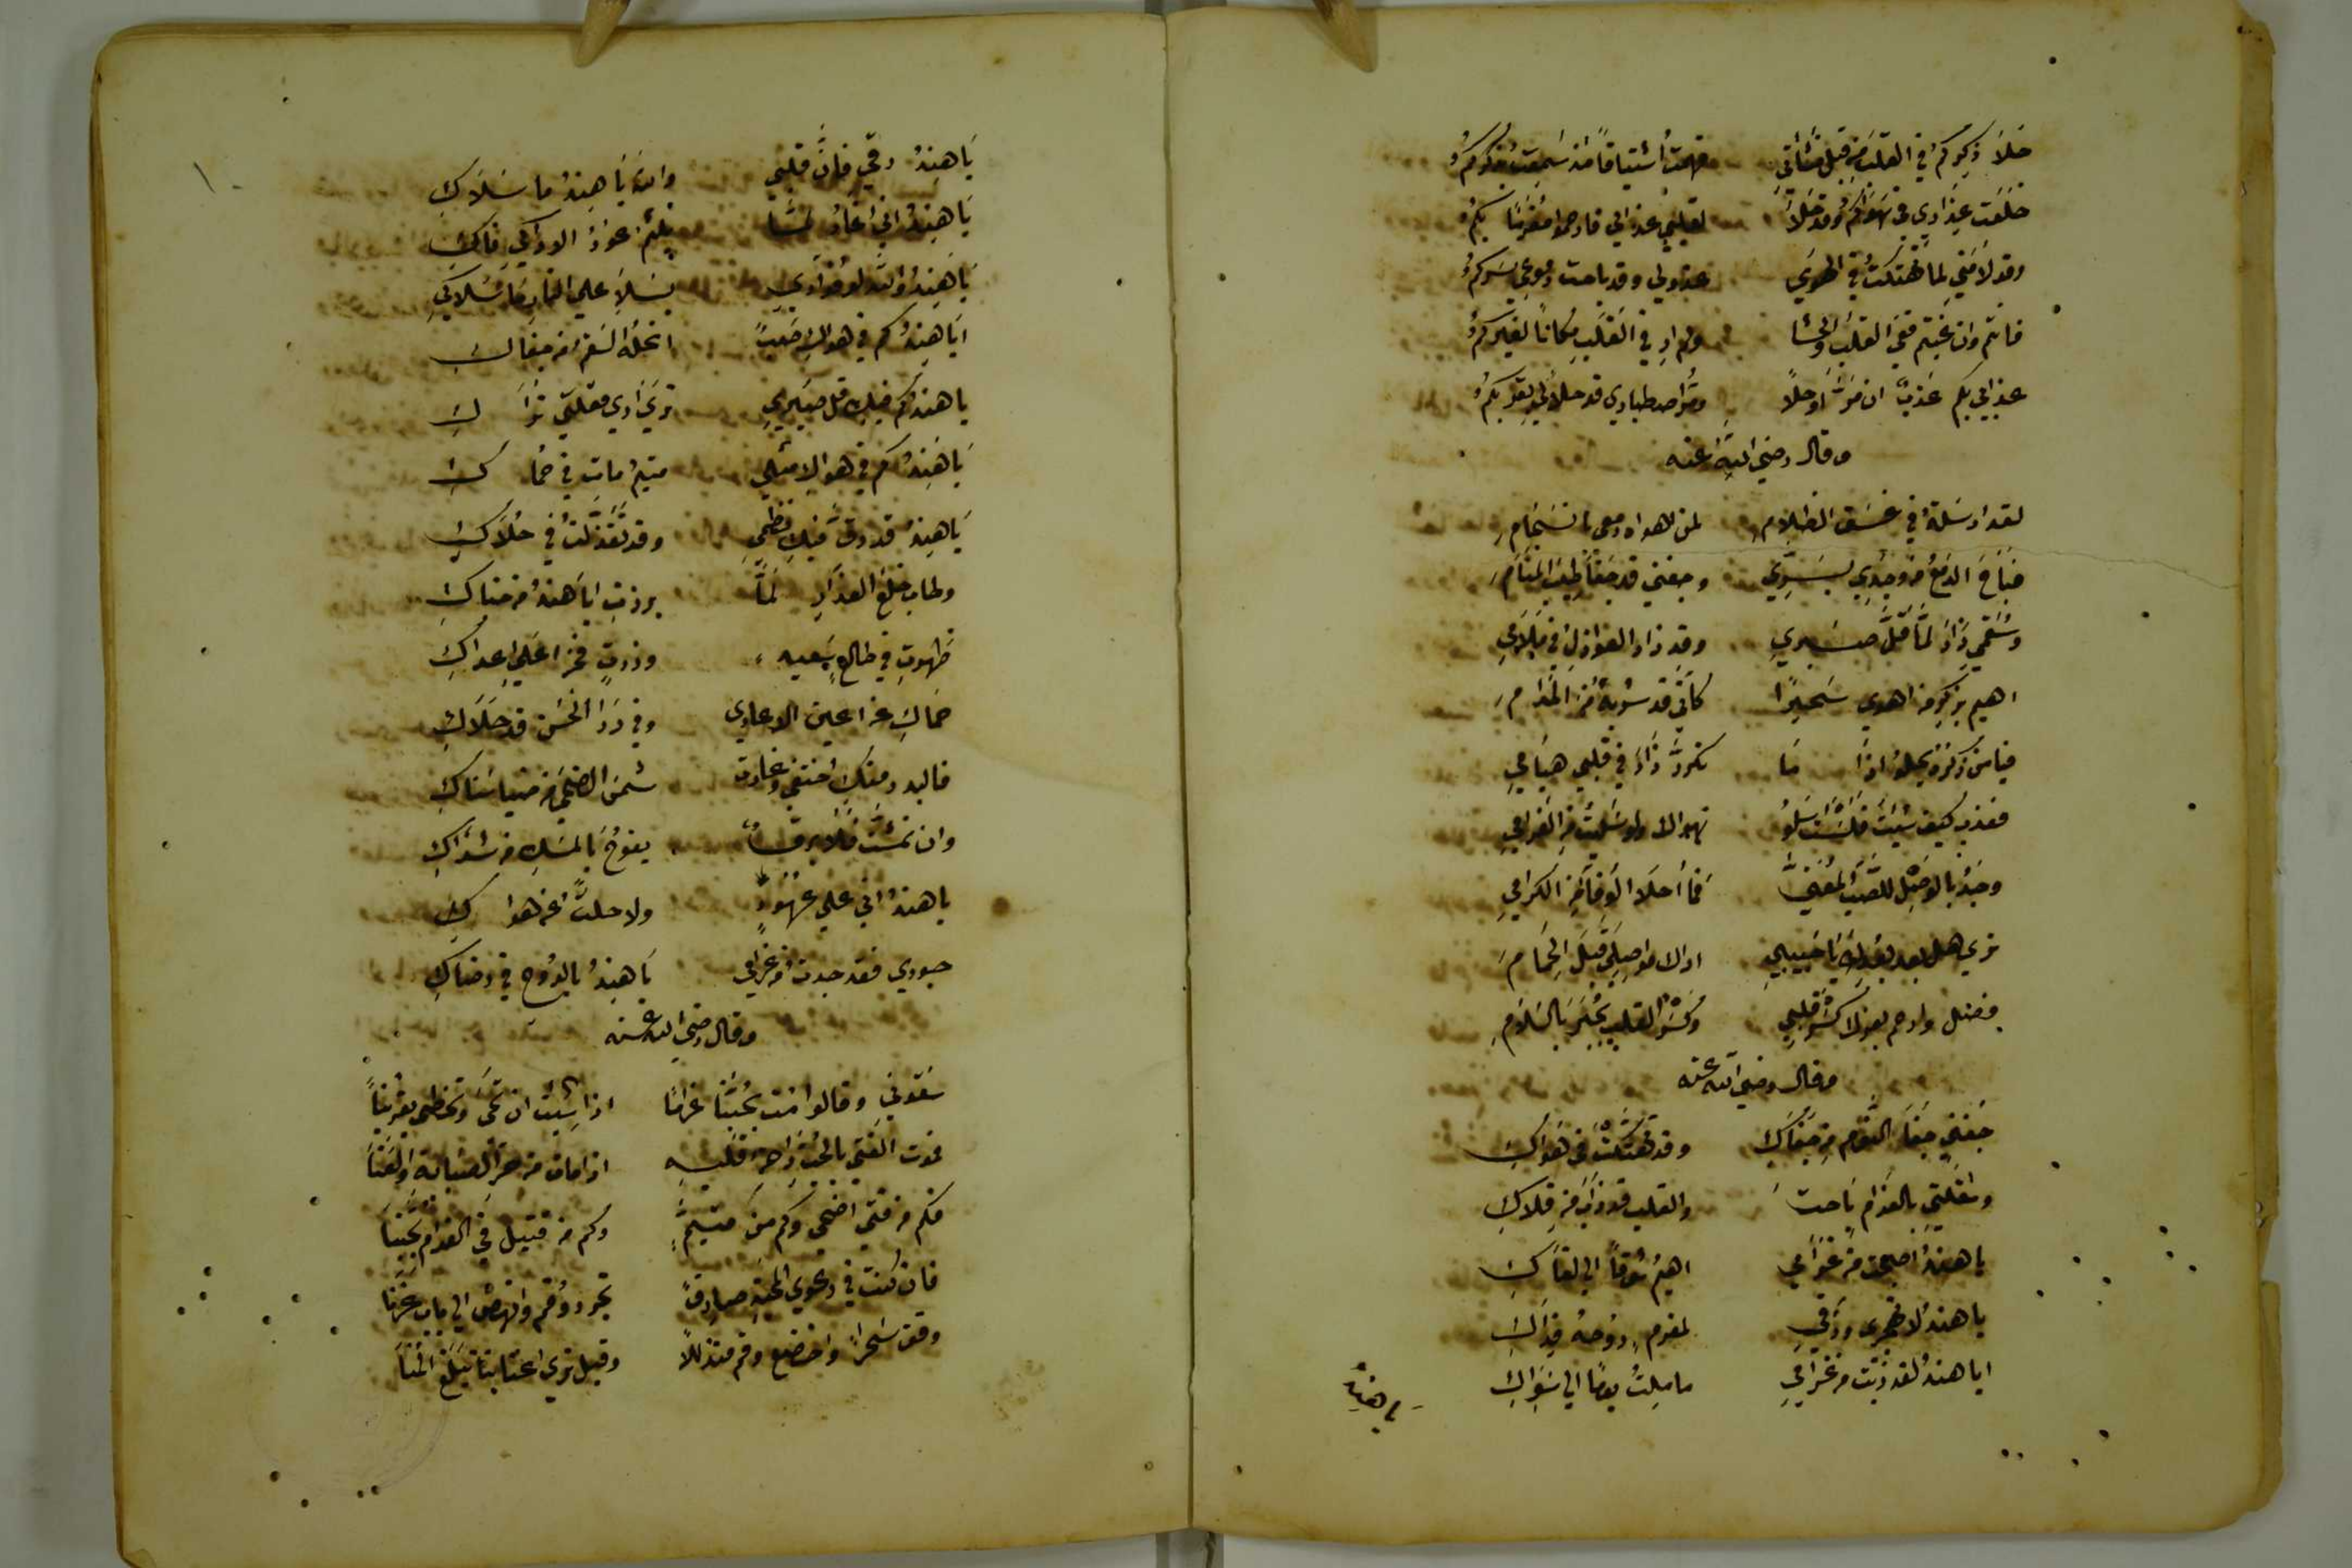 خلا ذكركم في القلب من قبل نشأتي فهمت اشتياقا مذ سمعت بذكركم
خلعت عذاري في هواكم وقد حلا لقلبي عذابي فارحموا مغرما بكم
وقد لامني لما تهتكت في الهوي عذولي وقد باحت دموعي بسركم
فانتم وان غبتم ففي القلب والحشا ولم ار في القلب مكانا لغيركم
عذابي بكم عذب ان مر او حلا ومر اصطباري قد حلا لي بقربكم
وقال رضي الله عنه
لقد ارسلة في غسق الظلام لمن اهواه دمعي بانسجام
فباح الدمع من وجدي بسري وجفني قد جفا طيب المنام
وسقمي زاد لما قل صبري وقد زاد العواذل في ملامي
اهيم بذكر من اهوي سحيرا كأني قد شربة من المدام
فيامن ذكره يحلو اذا ما تكرر زاد في قلبي هيامي
فعذب كيف شيت فلست اسلو هواك ولو سليت من الغرام
وجد بالوصل للصب المعنى فما احلا الوفا من الكرام
تري هل بعد بعدك يا حبيبي اراك مواصلي قبل الحمام
فضل وارحم بعزك كسر قلبي وكسر القلب يجبر بالسلام
وقال رضي الله عنه
جفني جفا النوم من جفاك وقد تهتكت في هواك
ومقلتي بالغرام باحت والقلب قد ذاب من قلاك
يا هند اصبحت من غرامي اهيم شوقا الي لقاك
يا هند لا تهجري ورقي لمغرم روحه فداك
ايا هند لقد ذبت من غرامي ما ملت يوما الي سواك
يا هند
يا هند رقي فان قلبي والله يا هند ما سلاك
يا هند اني اغار لما يلثم عود الاراك فاك
يا هند والله لو فؤادي يسلا علي النار ما سلاك
ايا هند كم في هواك صب انحله السقم من جفاك
يا هند كم فيك قل صبري تري اري مقلتي تراك
يا هند كم في هواك مثلي متيم مات في حماك
يا هند قد رق فيك نظمي وقد تغزلت في حلاك
وطاب خلع العذار لما برزت ايا هند من خباك
ظهرت في طالع سعيد وزدت فخرا علي اعداك
حماك عن اعين الاعادي وفي ردا الحسن قد حلاك
فالبدر منك اختفي وغارت شمس الضحى من ضيا سناك
يفوح بالمسك من شذاك
يا هند اني علي عهود ولا حلت عن هواك
جودي فقد جدت من غرامي يا هند بالروح في رضاك
وقال رضي الله عنه
سقوني وقالوا مت بحبنا غراما اذا شيت ان تحي وتحظى بقربنا
يموت الفتي بالحب راحة قلبه اذا مات من حر الصبابة والعنا
فكم من فتي اضحي وكم من متيم وكم من قتيل في الغرام بحبنا
فان كنت في دعوي المحبة صادقا تجرد وقم وانهض الي باب عزنا
وقف سحرا واخضع وقم متذللا وقبل ثري اعتابنا تبلغ المنا